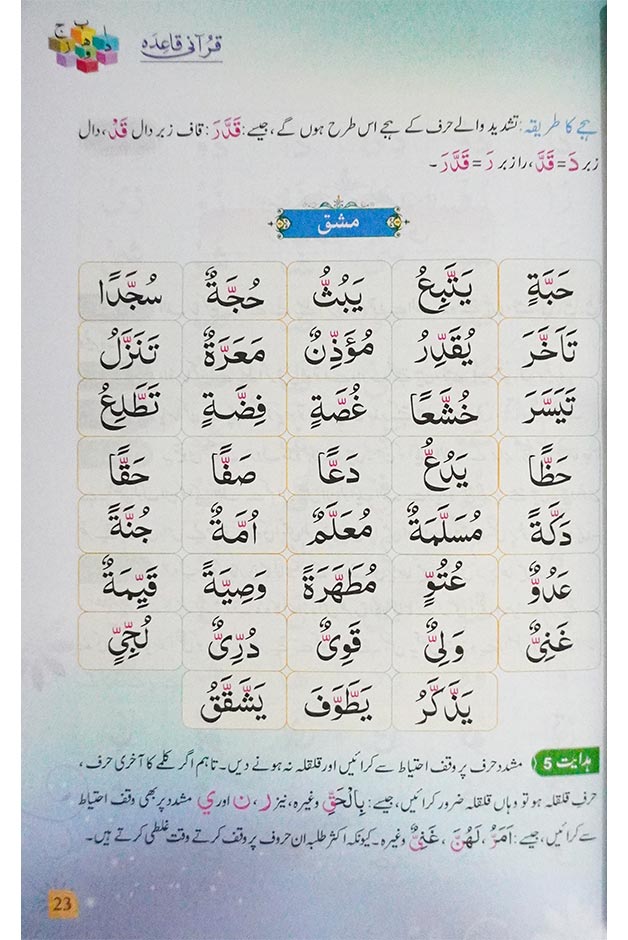 ا ب ج د ھ و ز
قرآنی قاعدہ
ہجے کا طریقہ: تشدید والے حرف کے ہجے اس طرح ہوں گے، جیسے: قَدَّرَ: قاف زبر دال قَدْ، دال
زبر دَ = قَدَّ، را زبر رَ = قَدَّرَ۔
مشق
حَبَّةٍ یَتَّبِعُ یَبُثُّ حُجَّةٌ سُجَّدًا
تَاَخَّرَ یُقَدِّرُ مُؤَذِّنٌ مَعَرَّةٌ تَنَزَّلُ
تَیَسَّرَ خُشَّعًا غُصَّةٍ فِضَّةٍ تَطَّلِعُ
حَظًّا یَدُعُّ دَعًّا صَفًّا حَقًّا
دَكَّةً مُسَلَّمَةٌ مُعَلَّمٌ اُمَّةٌ جُنَّةً
عَدُوٌّ عُتُوٍّ مُطَهَّرَةً وَصِیَّةً قَیِّمَةٌ
غَنِیٌّ وَلِیٌّ قَوِیٌّ دُرِّیٌّ لُجِّیٍّ
یَذَّكَّرُ یَطَّوَّفَ یَشَّقَّقُ
ہدایت 5 مشدد حرف پر وقف احتیاط سے کرائیں اور قلقلہ نہ ہونے دیں۔ تاہم اگر کلمے کا آخری حرف،
حرفِ قلقلہ ہو تو وہاں قلقلہ ضرور کرائیں، جیسے: بِالْحَقِّ وغیرہ، نیز ر، ن اور ي مشدد پر بھی وقف احتیاط
سے کرائیں، جیسے: اَمَرُّ، لَهُنَّ، غَنِیٌّ وغیرہ۔ کیونکہ اکثر طلبہ ان حروف پر وقف کرتے وقت غلطی کرتے ہیں۔
23